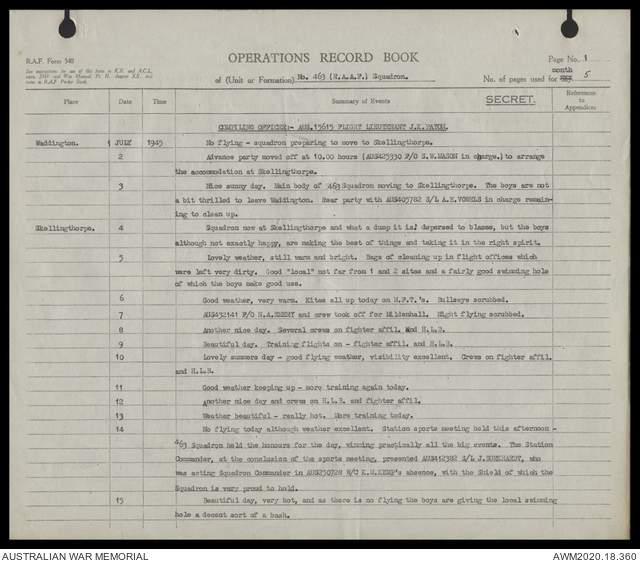 R.A.F. Form 540
OPERATIONS RECORD BOOK
Page No. 1
See instructions for use of this form in K.R. and A.C.I.,
para. 2349 and War Manual, Pt. II., chapter XX., and
notes in R.A.F. Pocket Book.
of (Unit or Formation) No. 463 (R.A.A.F.) Squadron.
month
No. of pages used for day 5
Place Date Time Summary of Events SECRET. References to Appendices
COMPILING OFFICER:- AUS.15615 FLIGHT LIEUTENANT J.K.PATON.
Waddington. 1 JULY 1945 No flying - squadron preparing to move to Skellingthorpe.
2 Advance party moved off at 10.00 hours (AUS425330 F/O S.W.MASON in charge.) to arrange
the accommodation at Skellingthorpe.
3 Nice sunny day. Main body of 463 Squadron moving to Skellingthorpe. The boys are not
a bit thrilled to leave Waddington. Rear party with AUS405782 S/L A.E.VOWELS in charge remain-
ing to clean up.
Skellingthorpe. 4 Squadron now at Skellingthorpe and what a dump it is! dispersed to blazes, but the boys
although not exactly happy, are making the best of things and taking it in the right spirit.
5 Lovely weather, still warm and bright. Bags of cleaning up in flight offices which
were left very dirty. Good "local" not far from 1 and 2 sites and a fairly good swimming hole
of which the boys make good use.
6 Good weather, very warm. Kites all up today on N.F.T.'s. Bullseye scrubbed.
7 AUS432141 F/O N.A. and crew took off for Mildenhall. Night flying scrubbed.
8 Another nice day. Several crews on fighter affil. and H.L.B.
9 Beautiful day. Training flights on - fighter affil. and H.L.B.
10 Lovely summers day - good flying weather, visibility excellent. Crews on fighter affil.
and H.L.B.
11 Good weather keeping up - more training again today.
12 Another nice day and crews on H.L.B. and fighter affil.
13 Weather beautiful - really hot. More training today.
14 No flying today although weather excellent. Station sports meeting held this afternoon -
463 Squadron held the honours for the day, winning practically all the big events. The Station
Commander, at the conclusion of the sports meeting, presented AUS412382 S/L J.BURKHARDT, who
was acting Squadron Commander in AUS250728 W/C K.M.KEMP's absence, with the Shield of which the
Squadron is very proud to hold.
15 Beautiful day, very hot, and as there is no flying the boys are giving the local swimming
hole a decent sort of a bash.
AUSTRALIAN WAR MEMORIAL
AWM2020.18.360